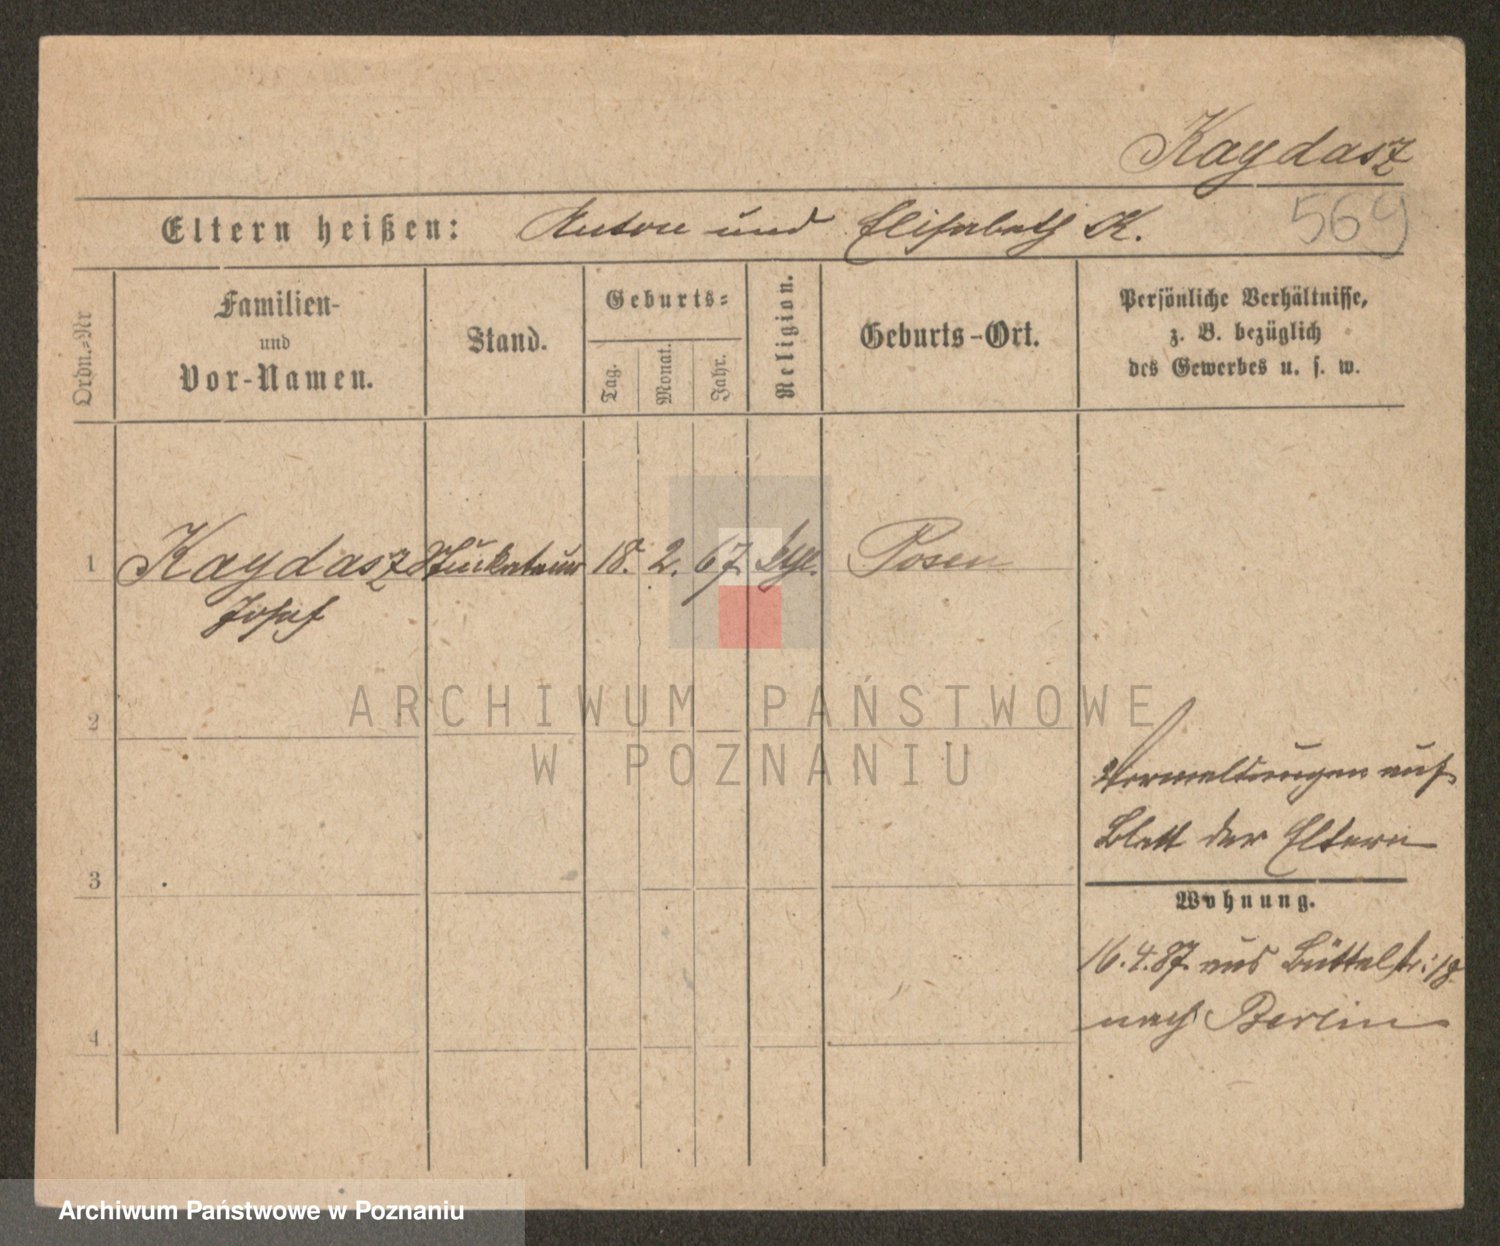 Kaydasz
569
Eltern heißen: Anton und Elisabeth K.
Ordn.-Nr
Familien-
und
Vor-Namen.
Stand.
Geburts-
Tag.
Monat.
Jahr.
Religion.
Geburts-Ort.
Persönliche Verhältnisse,
z. B. bezüglich
des Gewerbes u. s. w.
1 Kaydasz Stuckateur 18. 2. 67. Posen
Josef
ARCHIWUM PAŃSTWOWE
W POZNANIU
2
Vermeldungen auf
Blatt der Eltern
3
Wohnung.
16.4.87. aus Büttelstr. 18
nach Berlin
4
Archiwum Państwowe w Poznaniu